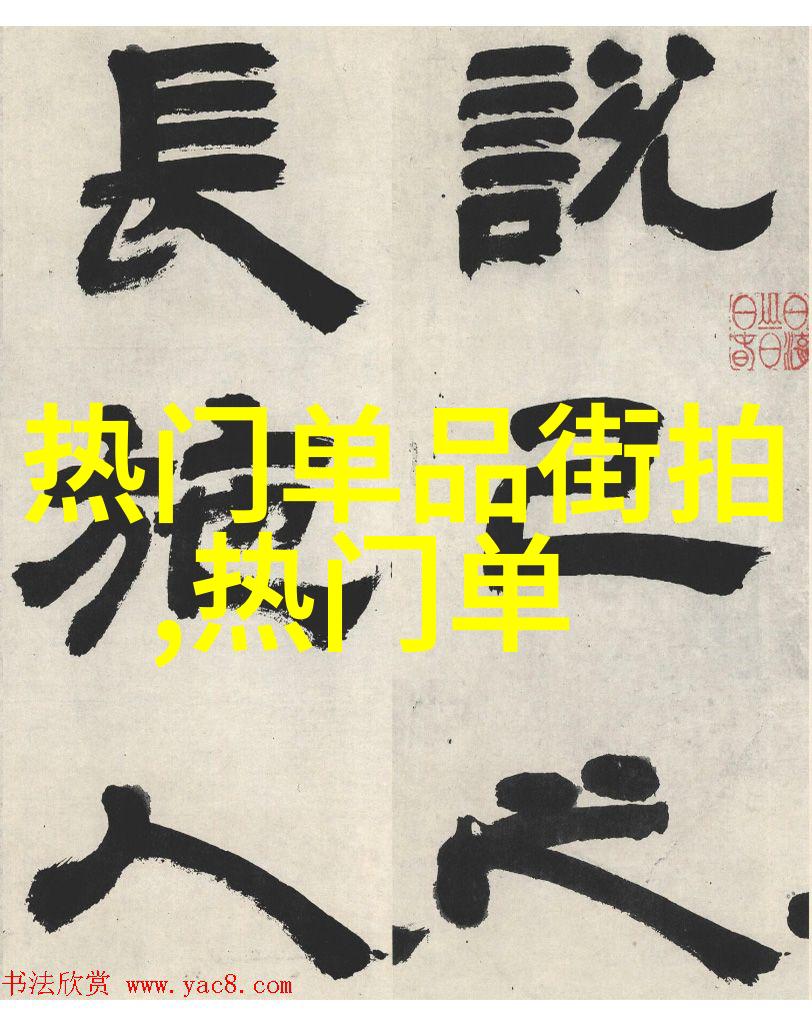 說己之
長施人
热门单品街拍
,热门单
书法欣赏 www.yac8.com